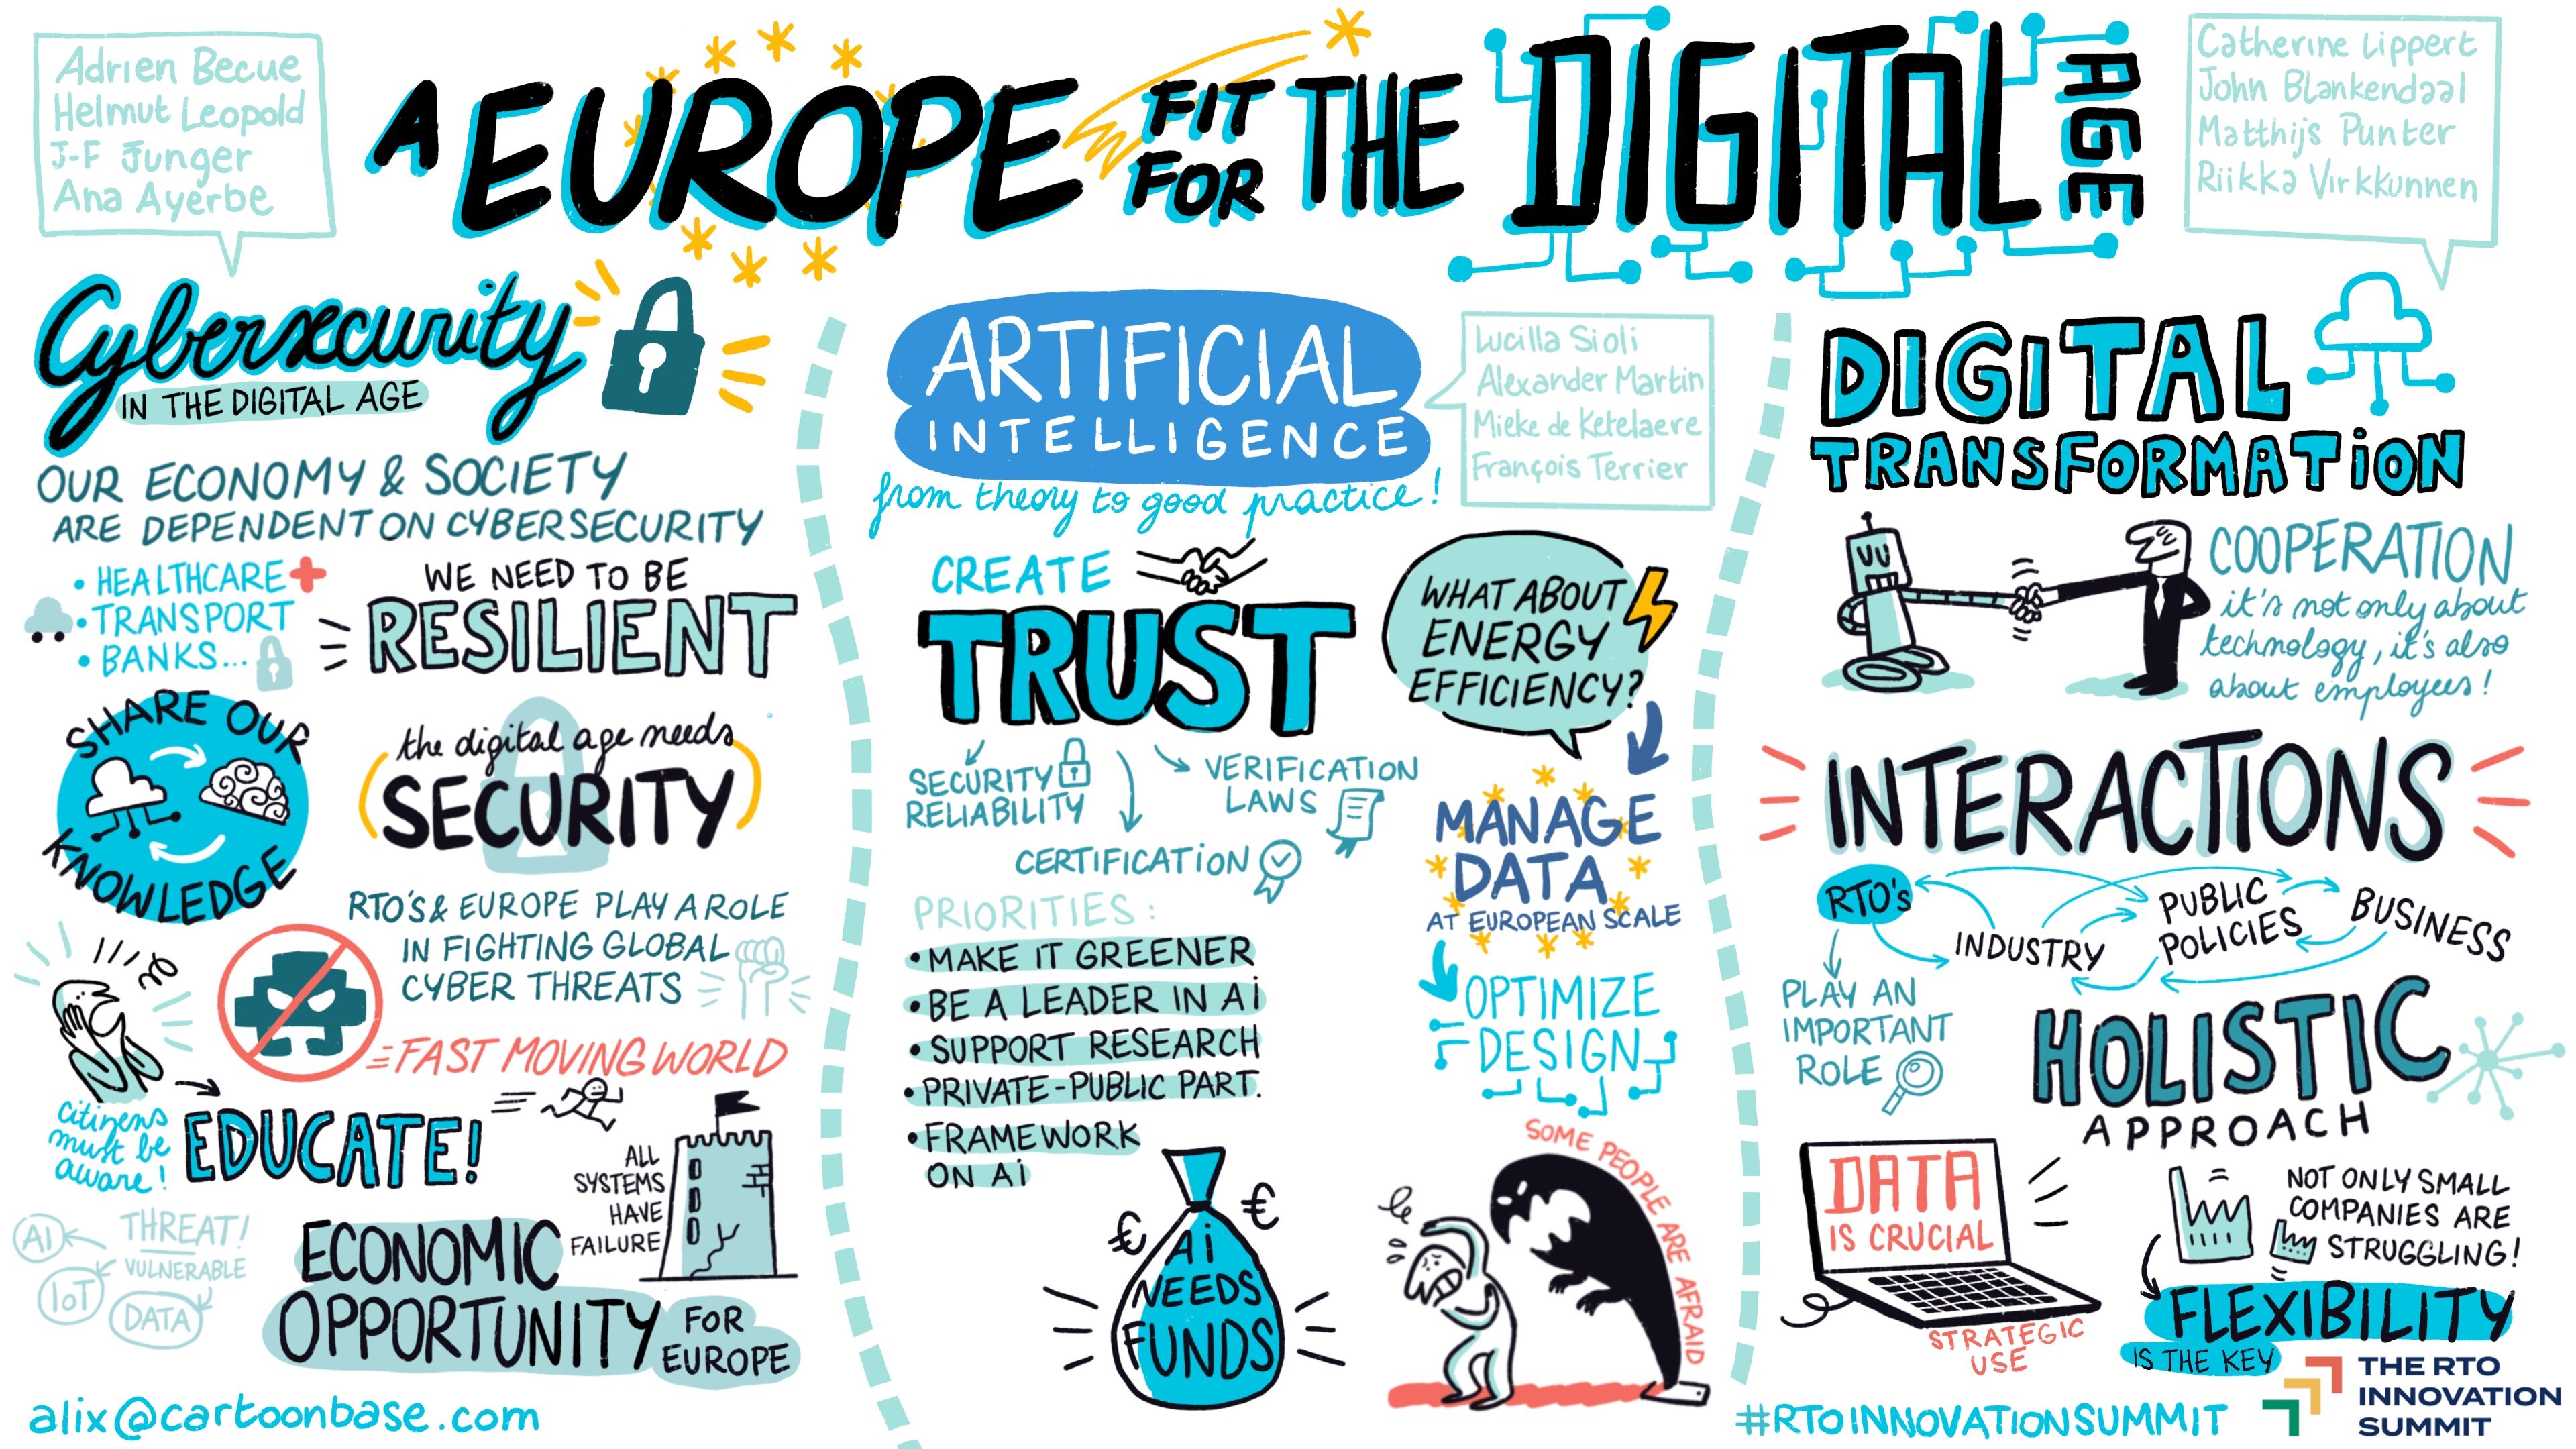 A EUROPE FIT FOR THE DIGITAL AGE
Adrien Becue
Helmut Leopold
J-F Junger
Ana Ayerbe
Cybersecurity
IN THE DIGITAL AGE
OUR ECONOMY & SOCIETY
ARE DEPENDENT ON CYBERSECURITY
• HEALTHCARE
• TRANSPORT
• BANKS...
WE NEED TO BE
RESILIENT
SHARE OUR
KNOWLEDGE
the digital age needs
SECURITY
RTO'S & EUROPE PLAY A ROLE
IN FIGHTING GLOBAL
CYBER THREATS
FAST MOVING WORLD
citizens
must be
aware!
EDUCATE!
ALL
SYSTEMS
HAVE
FAILURE
AI
THREAT!
VULNERABLE
IoT
DATA
ECONOMIC
OPPORTUNITY
FOR
EUROPE
alix@cartoonbase.com
ARTIFICIAL
INTELLIGENCE
from theory to good practice!
Lucilla Sioli
Alexander Martin
Mieke de Ketelaere
François Terrier
CREATE
TRUST
SECURITY
RELIABILITY
VERIFICATION
LAWS
CERTIFICATION
WHAT ABOUT
ENERGY
EFFICIENCY?
MANAGE
DATA
AT EUROPEAN SCALE
OPTIMIZE
DESIGN
PRIORITIES:
• MAKE IT GREENER
• BE A LEADER IN Ai
• SUPPORT RESEARCH
• PRIVATE-PUBLIC PART.
• FRAMEWORK
ON Ai
€
€
Ai
NEEDS
FUNDS
SOME PEOPLE ARE AFRAID
Catherine Lippert
John Blankendaal
Matthijs Punter
Riikka Virkkunnen
DIGITAL
TRANSFORMATiON
COOPERATION
it's not only about
technology, it's also
about employees!
INTERACTIONS
RTO's
INDUSTRY
PUBLIC
POLICIES
BUSINESS
PLAY AN
IMPORTANT
ROLE
HOLISTIC
APPROACH
DATA
IS CRUCIAL
STRATEGIC
USE
NOT ONLY SMALL
COMPANIES ARE
STRUGGLING!
FLEXIBILITY
IS THE KEY
#RTOINNOVATIONSUMMIT
THE RTO
INNOVATION
SUMMIT